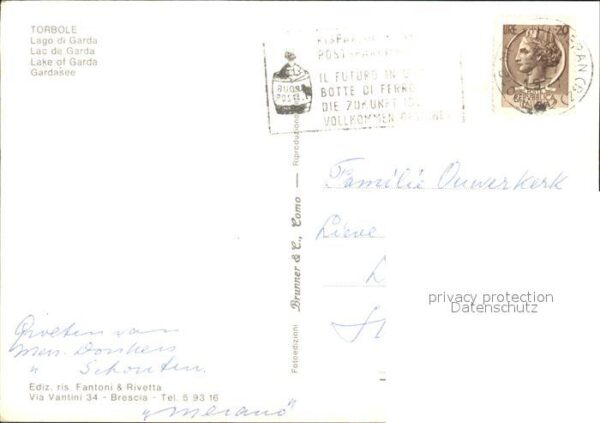 TORBOLE
Lago di Garda
Lac de Garda
Lake of Garda
Gardasee
POSTE
IL FUTURO IN
BOTTE DI FERRO
DIE ZUKUNFT
VOLLKOMMEN
BUONI
POSTALI
LIRE 20
Fotoedizioni Brunner & C., Como — Riproduzione
Familie Ouwerkerk
Lieve
privacy protection
Datenschutz
Groeten van
Men. Donkers
" Schouten.
Ediz. ris. Fantoni & Rivetta
Via Vantini 34 - Brescia - Tel. 5 93 16
"Merano"